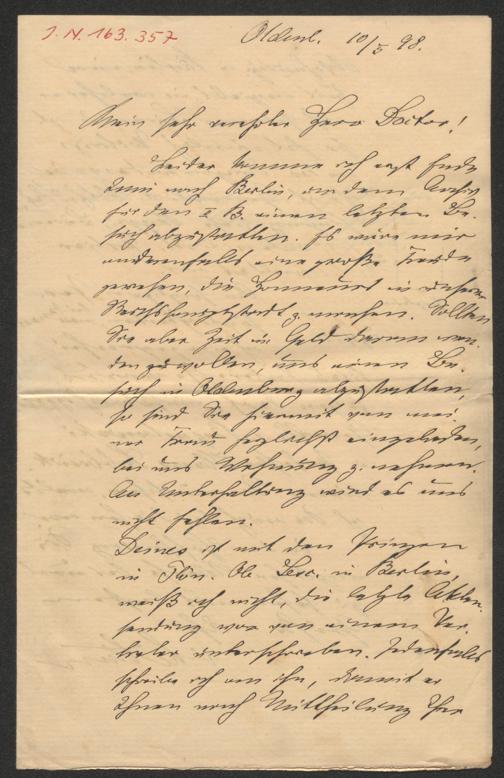 J. N. 163.357
Oldenb. 10/5 98.
Mein sehr verehrter Herr Doctor!
Leider komme ich erst Ende
Juni nach Berlin, um dem Archiv
für den II B. einen letzten Be-
such abzustatten. Es wäre mir
anderenfalls eine große Freude
gewesen, die Honneurs in unserer
Reichshauptstadt z. machen. Sollten
Sie aber Zeit u. Geld daran wen-
den zu wollen, uns einen Be-
such in Oldenburg abzustatten,
so sind Sie hiermit von mei-
ner Frau herzlichst eingeladen,
bei uns Wohnung z. nehmen.
An Unterhaltung wird es uns
nicht fehlen.
Deines ist mit den Prinzen
in Plön. Ob Lesc. in Berlin,
weiß ich nicht, die letzte Akten-
sendung war von einem Ver-
treter unterschrieben. Jedenfalls
schreibe ich an ihn, damit er
Ihnen nach Mittheilung Ihrer